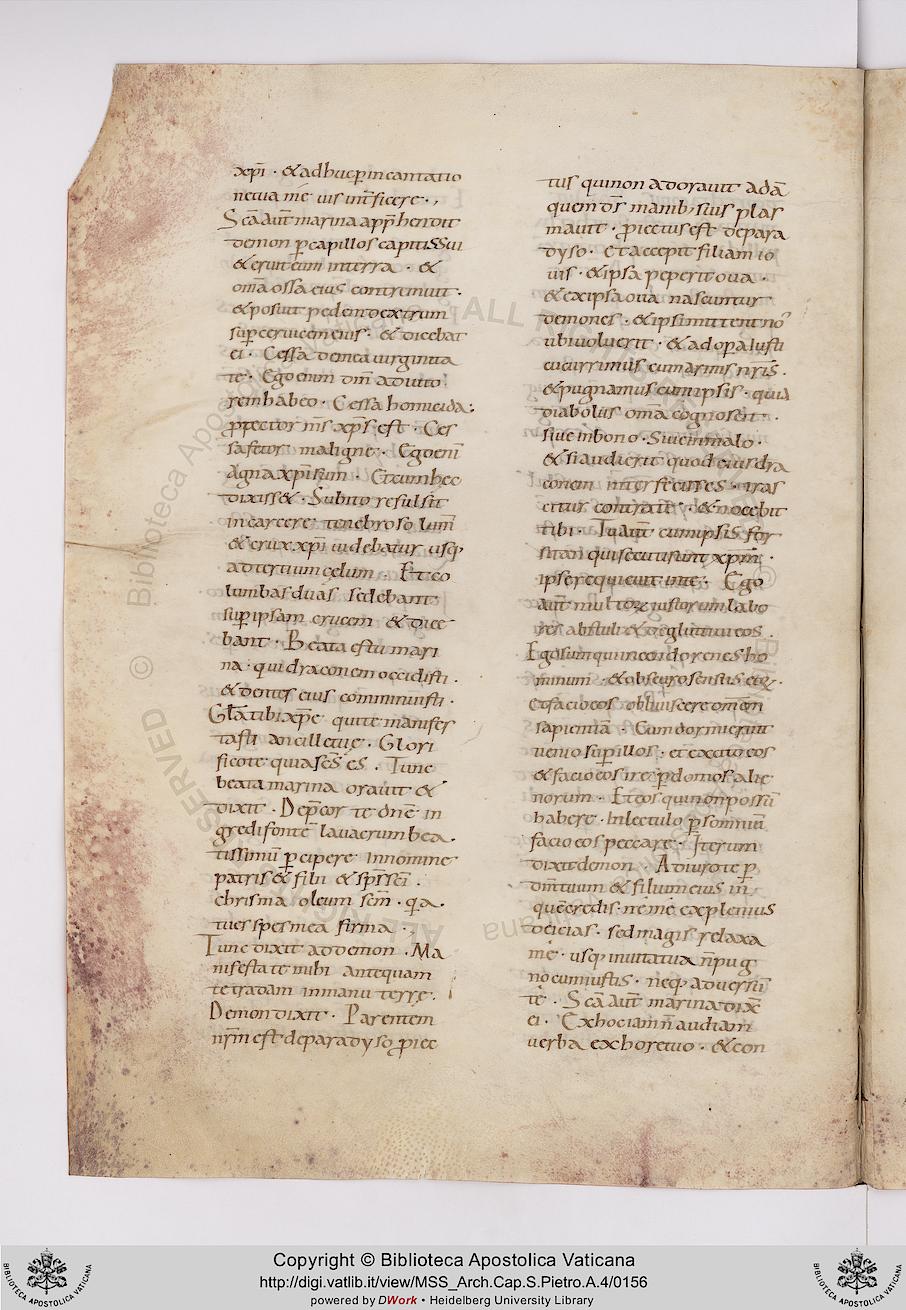 xp̄i · & adhuc p̱ incantatio
ne tua mē uis int̄ficere · ,
Sc̄a aut̄ marina app̱hendit
demon p̱ capillos capitis sui
& eruit eum interra · &
om̄a ossa eius contriuit ·
& posuit pedem dextrum
sup̱ ceruicem eius · & dicebat
ei · Cessa de mea uirginita
te · Egoenim dn̄m adiuto
rem habeo · Cessa homicida :
ꝓtector m̄s xp̄s est · Ces
sa fetor maligne · Egoeni
agna xp̄i sum · Et cum hec
dixiss& · Subito refulsit
in carcere tenebroso lum̄
& crux xp̄i uidebatur usq;
ad tertium cęlum · Et co
lumbas duas sedebant
sup̱ ipsam crucem & dice
bant · Beata es tu mari
na · qui draconem occidisti ·
& dentes eius comminuisti ·
Gła tibi xp̄e qui te manifes
tasti ancille tue · Glori
ficote quia sc̄s es · Tunc
beata marina orauit &
dixit · Dep̄cor te dn̄e in
gredi fontē lauacrum bea
tissimū p̱cipere in nomine
patris & filii & sp̄s sc̄i ·
chrisma oleum sc̄m · q̱a ·
tu es spes mea firma · ,
Tunc dixit ad demon · Ma
nifesta te mihi antequam
te tradam in manu terrę ·
Demon dixit · Parentem
nr̄m est de paradyso ꝓiec
tus qui non adorauit adā
quem dn̄s manib; suis plas
mauit · ꝓiectus est de para
dyso · Et accepit filiam io
uis · & ipsa peperit oua ·
& ex ipsa oua nascuntur
demones · & ipsi mittent no
ubi uoluerit · & ad op̱a iusti
cucurrimus cum armis nr̄is ·
& pugnamus cum ipsis · quia
diabolus om̄a cognoscit ·
siue in bono · Siue in malo ·
& si audierit quod eius dra
conem interfecisses · iras
citur contra te · & nocebit
tibi · Tu aut̄ cum ipsis for
sitan qui secuti sunt xp̄m ·
ipse requieuit in te · Ego
aut̄ multoꝝ iustorum labo
res abstuli & deglutiui eos ·
Ego sum qui incendo renes ho
minum · & obscuro sensus eoꝝ ·
Et facio eos obliuiscere om̄em
sapientiā · Cum dormierint
uenio sup̱ illos · et excito eos
& facio eos ire p̱ domos alie
norum · Et eos qui non possū
habere · In lectulo p̱ somnium
facio eos peccare · Iterum
dixit demon · Adiuro te p̱
dm̄ tuum & filium eius in
quē credis · ne me expleniús
deicias · sed magis relaxa
mē · usq; in uita tua n̄ pug
no cum iustis · neq; aduersū
te · Sc̄a aut̄ marina dix̄
ei · Ex hoc iam n̄ audiam
uerba ex hore tuo · & con
Copyright © Biblioteca Apostolica Vaticana
http://digi.vatlib.it/view/MSS_Arch.Cap.S.Pietro.A.4/0156
powered by DWork • Heidelberg University Library